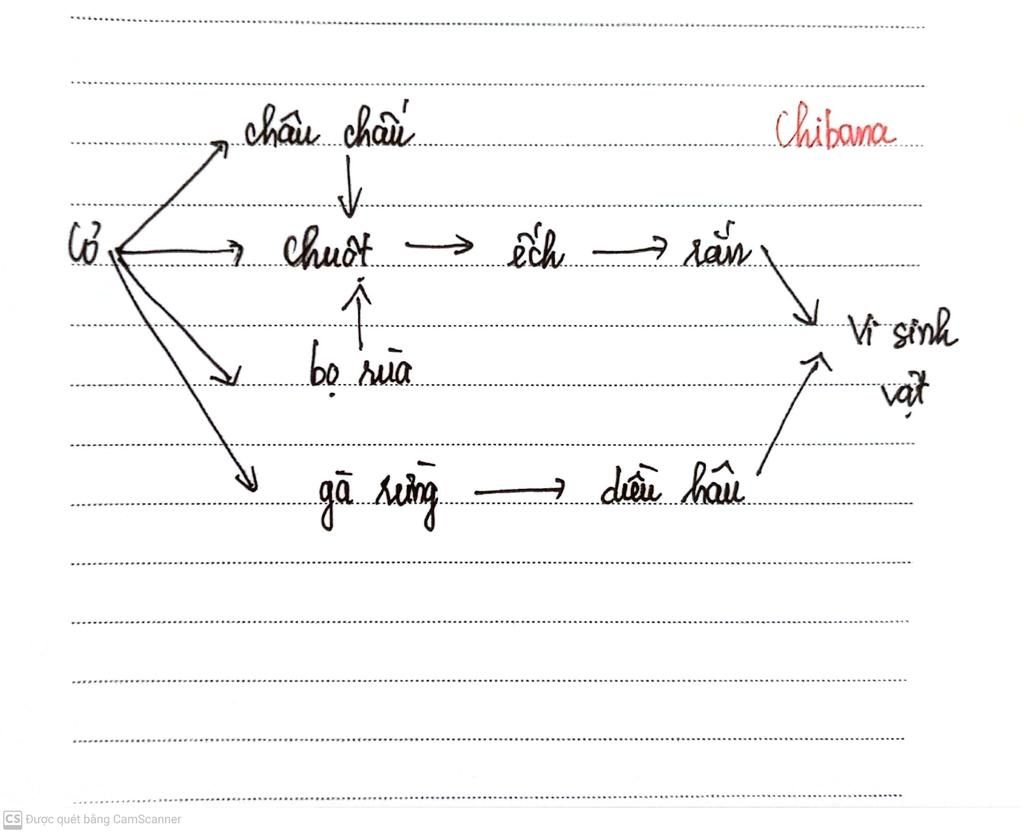 châu chấu
Chibana
Cỏ
chuột
ếch
rắn
Vi sinh
vật
bọ rùa
gà rừng
diều hâu
CS Được quét bằng CamScanner